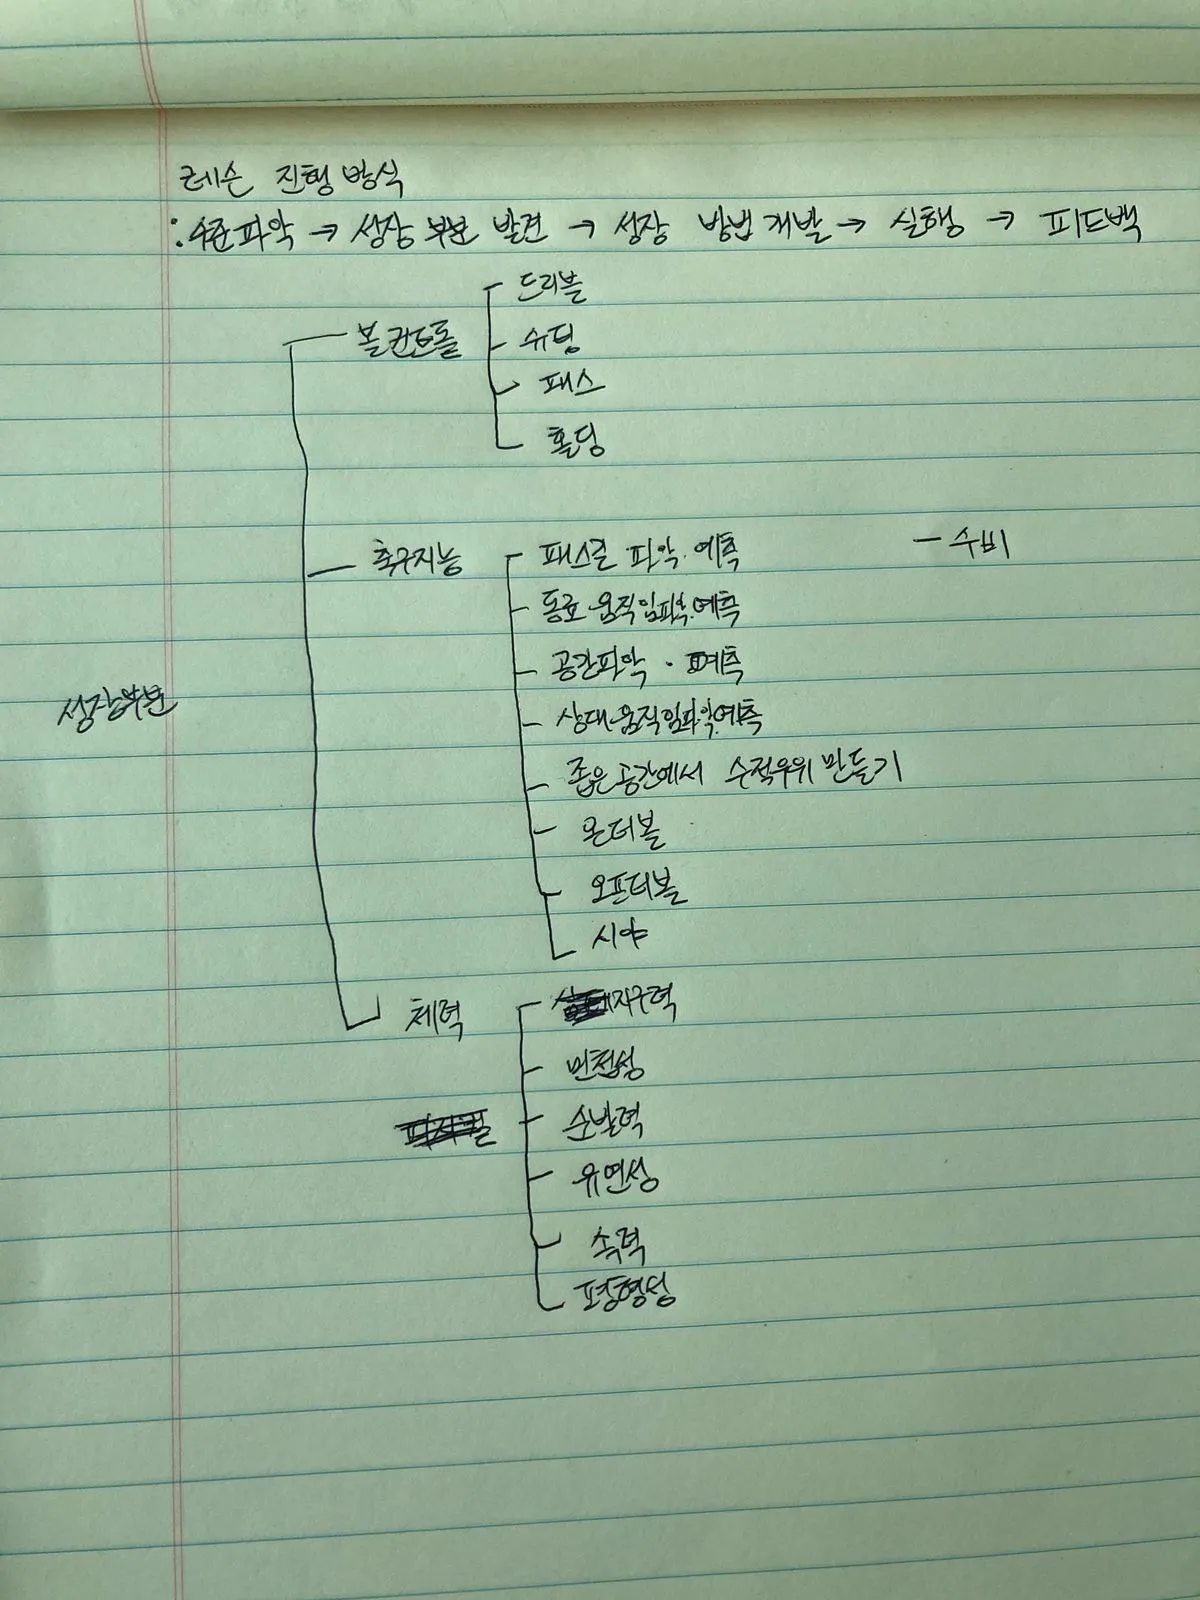 레슨 진행 방식
: 수준파악 → 성장 부분 발견 → 성장 방법 개발 → 실행 → 피드백
드리블
볼 컨트롤
슈팅
패스
홀딩
축구지능
패스길 파악·예측
- 수비
동료 움직임파악·예측
공간파악 · 예측
성장부분
상대 움직임파악·예측
좁은 공간에서 수적우위 만들기
온더볼
오프더볼
시야
체력
지구력
민첩성
순발력
유연성
속력
평형성